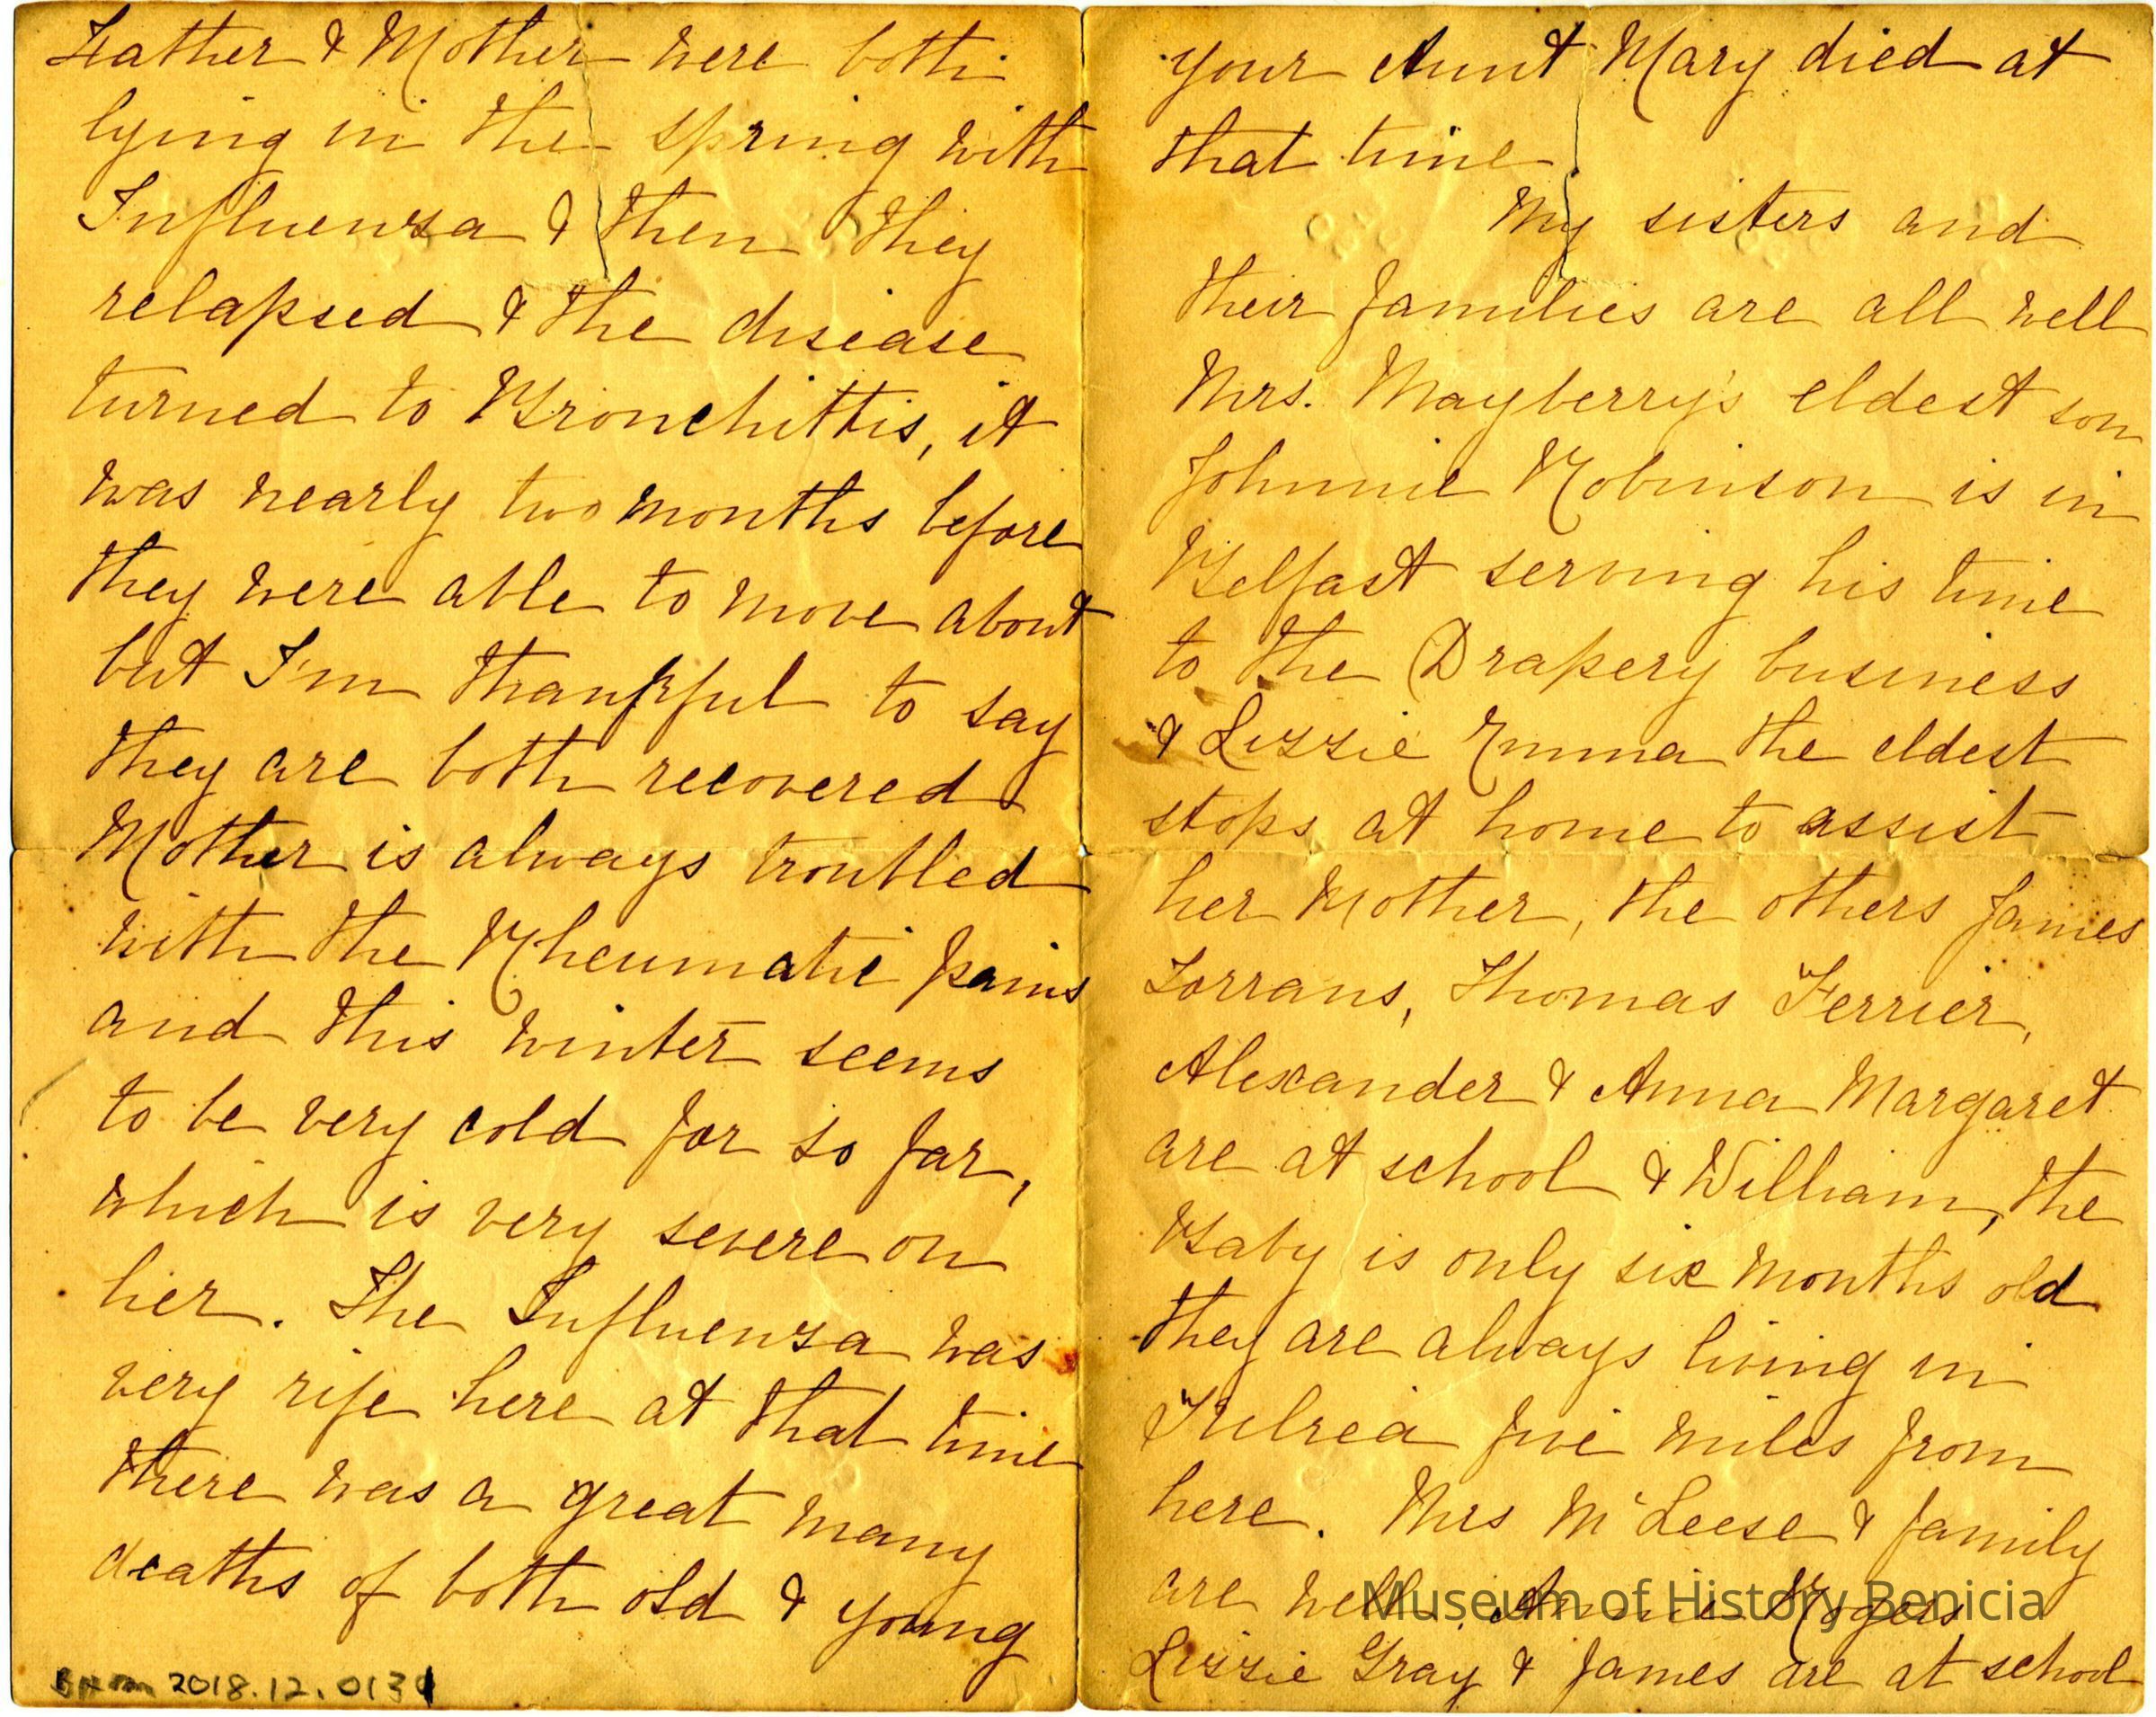 Father & Mother were both
lying in the spring with
Influenza & then they
relapsed & the disease
turned to Bronchittis, it
was nearly two months before
they were able to move about
but I'm thankful to say
they are both recovered
Mother is always troubled
with the Rheumatic pains
and this winter seems
to be very cold for so far,
which is very severe on
her. The Influenza was
very rife here at that time
there was a great many
deaths of both old & young
2018.12.013
your Aunt Mary died at
that time
My sisters and
their families are all well
Mrs. Mayberry's eldest son
Johnnie Robinson is in
Belfast serving his time
to the Drapery business
& Lizzie Emma the eldest
stops at home to assist
her Mother, the others James
Torrans, Thomas Ferrier,
Alexander & Anna Margaret
are at school & William, the
Baby is only six months old
they are always living in
Kilrea five miles from
here. Mrs McLeese & family
are well. Annie Rogers
Lizzie Gray & James are at school
Museum of History Benicia